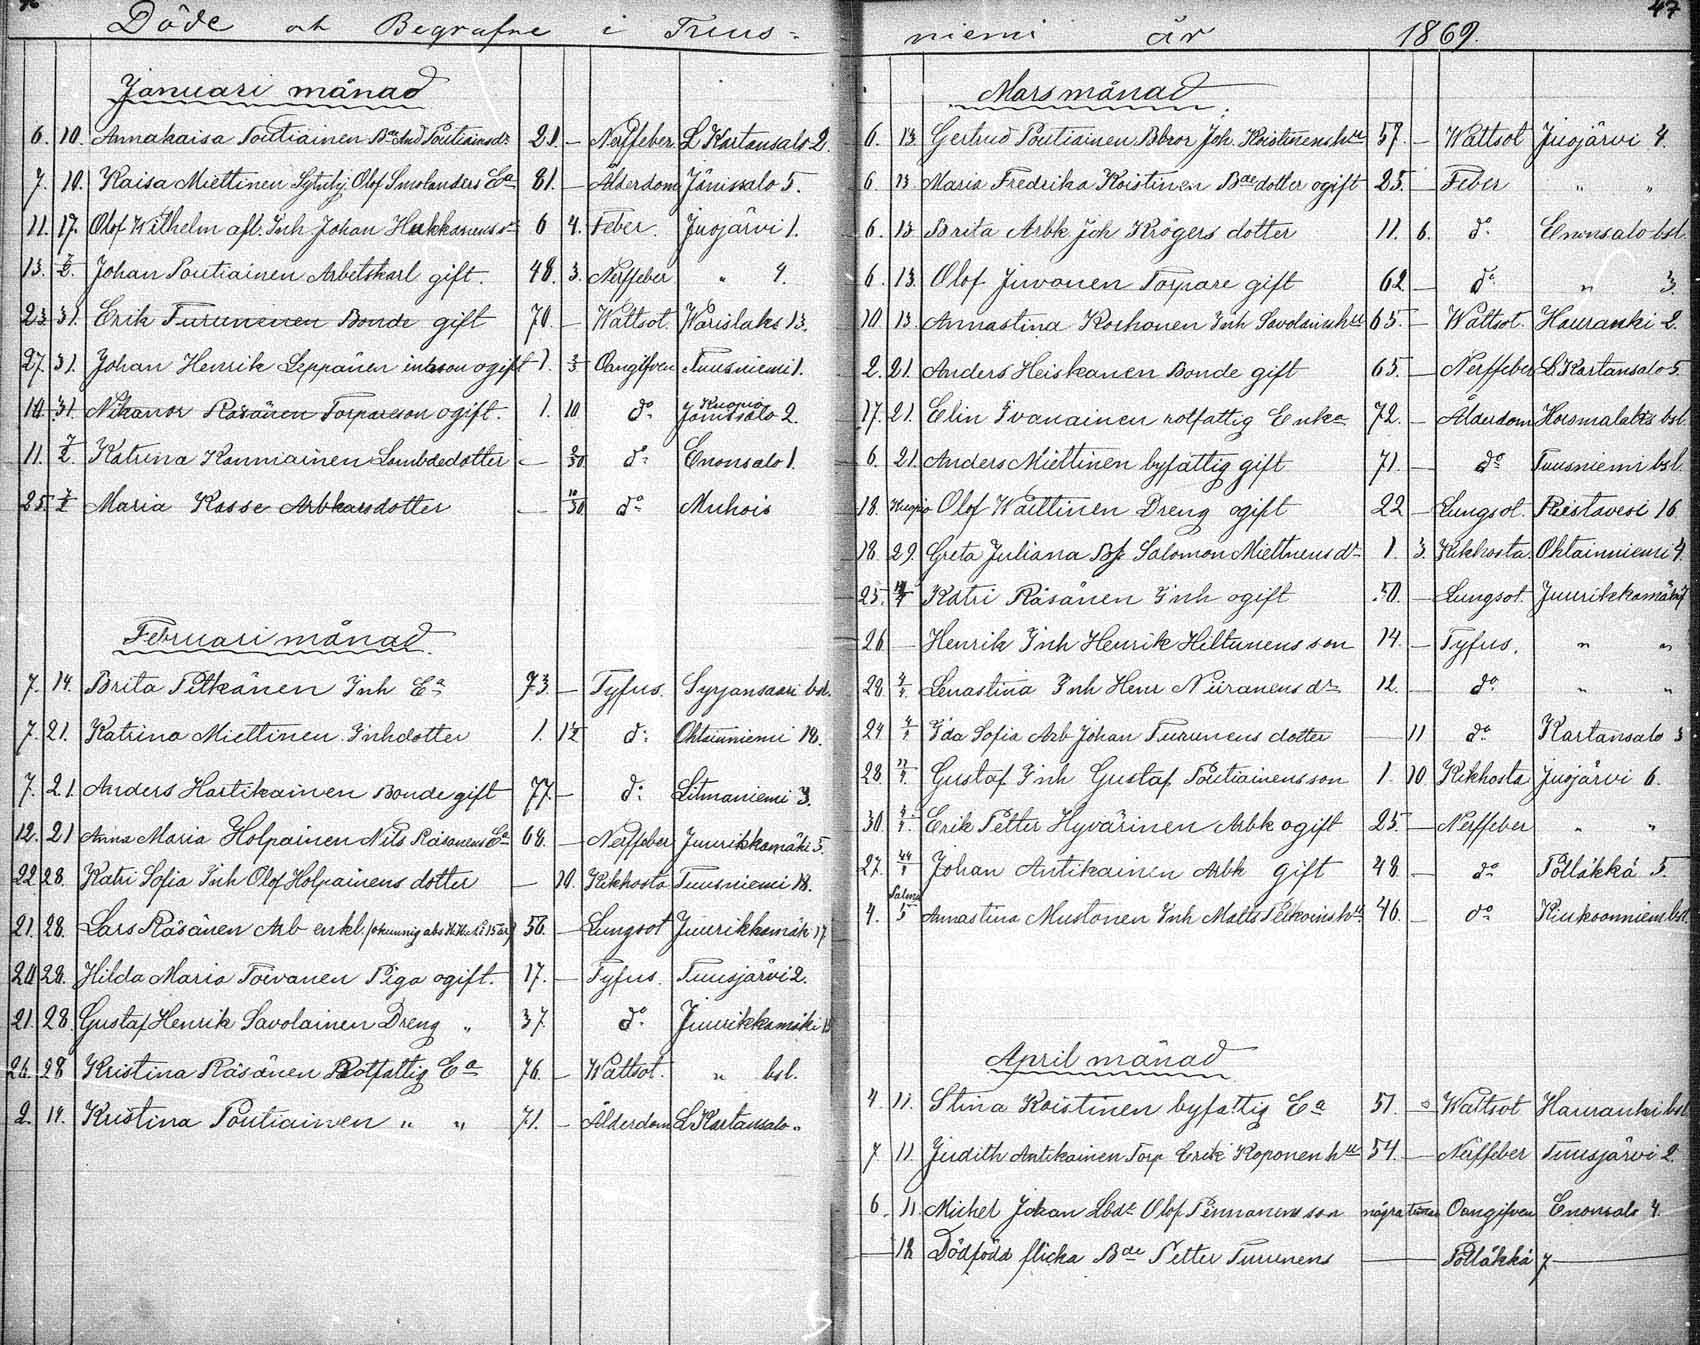 Döde och Begrafne i Tuus-
Januari månad
6. 10. Annakaisa Poutiainen Bde And Poutiainsdr 21 — Nerffeber L Kartansalo 2.
7. 10. Kaisa Miettinen Sytnhj. Olof Smolanders Ea 81. — Ålderdom Jänissalo 5.
11. 17. Olof Wilhelm afl. Inh Johan Hakkarainens 6 4. Feber. Juojärvi 1.
13. 7/2. Johan Poutiainen Arbetskarl gift. 48. 3. Nerffeber " 4.
23 31. Erik Turunenen Bonde gift 70. — Wattsot. Warislaks 13.
27. 31. Johan Henrik Leppänen inhson ogift 1. 3 Oangifven Tuusniemi 1.
14. 31. Nikanor Räsänen Torpareson ogift. 1. 10 do. Kuopio Jänissalo 2.
11. 7/2. Katrina Kanniainen Lambdedotter — 2/30 do. Enonsalo 1.
25. 7/2 Maria Kasse Arbkarsdotter — 10/30 do. Muhois
Februari månad.
7. 14. Brita Pitkänen Inh Ea 73 — Tyfus. Syrjansaari bsl.
7. 21. Katrina Miettinen Inhdotter 1. 1 1/2 do. Ohtainniemi 18.
7. 21. Anders Hartikainen Bonde gift 77. — do. Litmaniemi 3.
12. 21 Anna Maria Holpainen Nils Räsänens Ea 68. — Nerffeber Juurikkamäki 5.
22 28. Katri Sofia Inh Olof Holpainens dotter — 10. Kikhosta Tuusniemi 18.
21. 28. Lars Räsänen Arb enkl. 56. — Lungsot Juurikkamäki 17
24 28. Hilda Maria Toivanen Piga ogift. 17. — Tyfus. Tuusjärvi 2.
21. 28. Gustaf Henrik Savolainen Dreng " 37. do. Juurikkamäki
26. 28 Kristina Räsänen Rotfattig Ea 76. — Wattsot. " bsl.
2. 14. Kristina Poutiainen " " 71. — Ålderdom L Kartansalo "
47
niemi år 1869.
Mars månad.
6. 13. Gertrud Poutiainen Bbror Joh. Koistinens hu 57. — Wattsot Juojärvi 4.
6 13 Maria Fredrika Koistinen Bde dotter ogift 25. — Feber " "
6. 13 Brita Arbk Joh Krögers dotter 11. 6. do. Enonsalo bsl.
6. 13. Olof Juvonen Torpare gift 62 — do. " 3.
10. 13 Annastina Korhonen Inh Savolainshu 65. — Wattsot. Hauranki 2.
2. 21. Anders Heiskanen Bonde gift 65. — Nerffeber L Kartansalo 5.
17. 21. Elin Ivanainen rotfattig Enka 72. — Ålderdom Hosmalaks bsl.
6. 21. Anders Miettinen byfattig gift 71. — do Tuusniemi bsl.
18. Kuopio Olof Waittinen Dreng ogift 22 — Lungsot. Riistavesi 16
18. 29. Greta Juliana Bde Salomon Miettinens dr 1. 3. Kikhosta. Ohtainniemi 4.
25. Katri Räsänen Inh ogift 50. — Lungsot. Juurikkamäki
26 — Henrik Inh Henrik Hiltunens son 14. — Tyfus. " "
28 4/4 Lenastina Inh Henr Niiranens dr 12. — do. " "
24 Ida Sofia Arb Johan Turunens dotter — 11 do Kartansalo 3
28 Gustaf Inh Gustaf Poutiainens son 1. 10 Kikhosta Juojärvi 6.
30. Erik Petter Hyvärinen Arbk ogift 25. — Nerffeber " "
27. Johan Antikainen Arbk gift 48 — do Pölläkkä 5.
4. 5 Annastina Mustonen Inh Matts hu 46. — do bsl
April månad
4. 11. Stina Koistinen byfattig Ea 51. — Wattsot Hauranki bsl
7 11. Judith Antikainen Torp Erik Koponen hu 54. — Nerffeber Tuusjärvi 2.
6. 11. Michel Johan Lbde Olof Pennanens son några timar Oangifven Enonsalo 4.
— 18 Dödfödd flicka Bde Petter Turunens — Pölläkkä 7 —